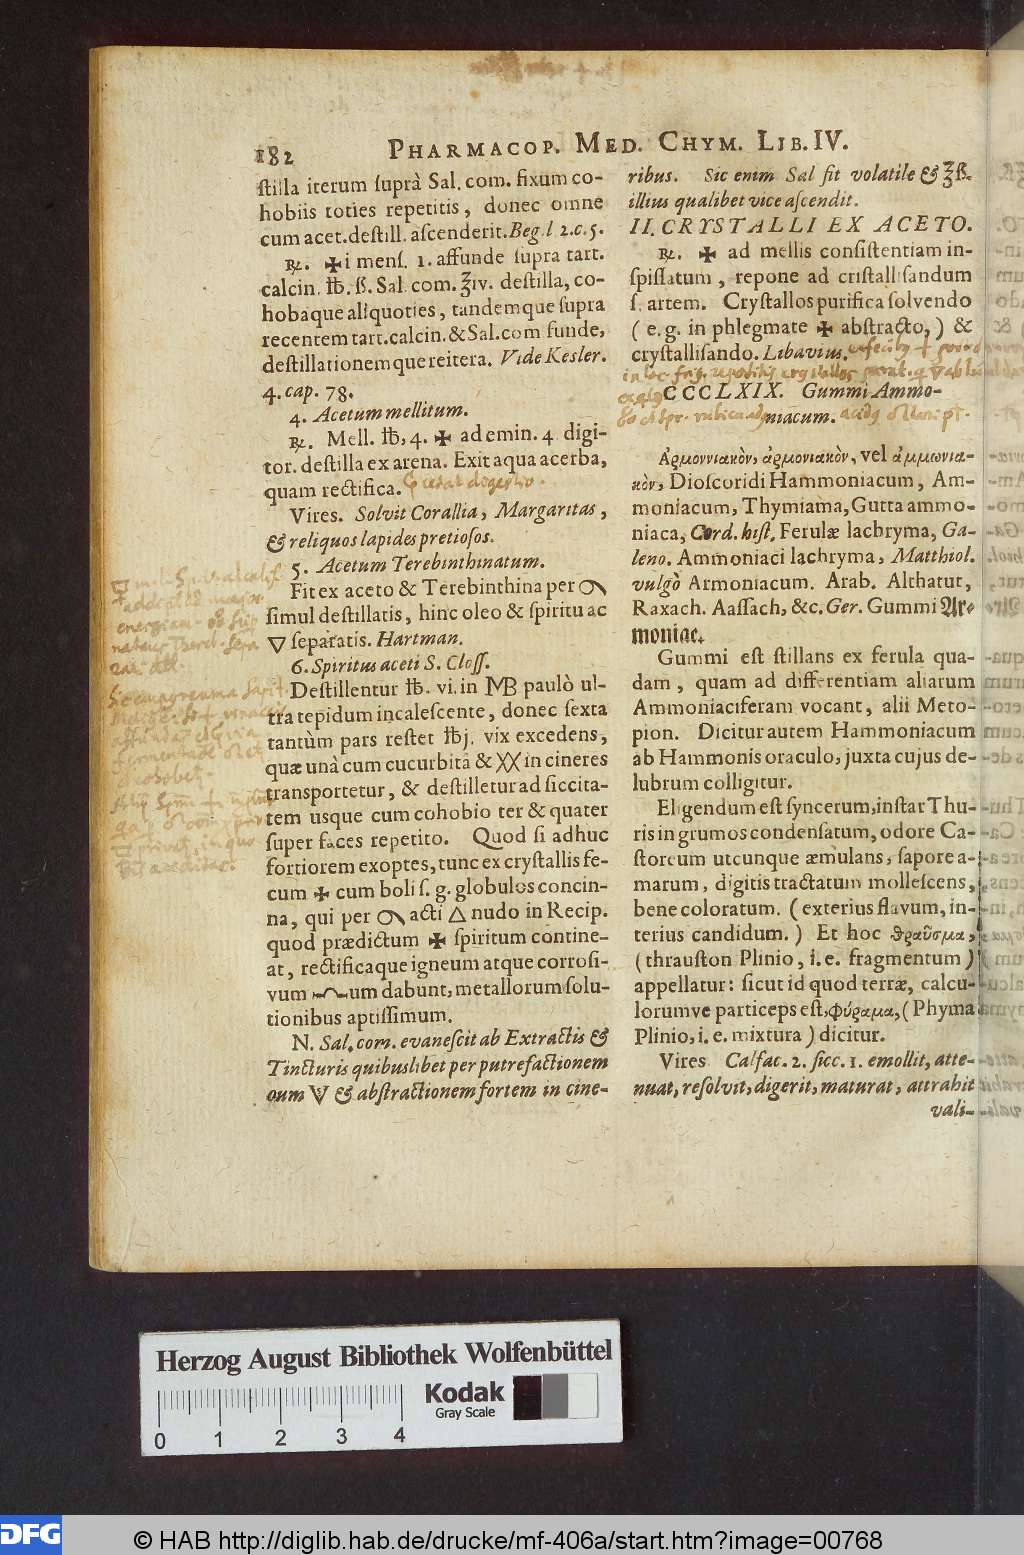 182 PHARMACOP. MED. CHYM. LIB. IV.
ſtilla iterum ſuprà Sal. com. fixum co-
hobiis toties repetitis, donec omne
cum acet. deſtill. aſcenderit. Beg. l 2. c. 5.
℞. ✠i menſ. 1. affunde ſupra tart.
calcin. ℔. ß. Sal com. ℥iv. deſtilla, co-
hobaque aliquoties, tandemque ſupra
recentem tart. calcin. & Sal. com funde,
deſtillationemque reitera. Vide Kesler.
4. cap. 78.
4. Acetum mellitum.
℞. Mell. ℔, 4. ✠ ad emin. 4 digi-
tor. deſtilla ex arena. Exit aqua acerba,
quam rectifica.
Vires. Solvit Corallia, Margaritas,
& reliquos lapides pretioſos.
5. Acetum Terebinthinatum.
Fit ex aceto & Terebinthina per
ſimul deſtillatis, hinc oleo & ſpiritu ac
▽ ſeparatis. Hartman.
6. Spiritus aceti S. Cloſſ.
Deſtillentur ℔. vi. in MB paulò ul-
tra tepidum incaleſcente, donec ſexta
tantùm pars reſtet ℔j. vix excedens,
quæ unà cum cucurbitâ & XX in cineres
transportetur, & deſtilletur ad ſiccita-
tem usque cum cohobio ter & quater
ſuper fæces repetito. Quod ſi adhuc
fortiorem exoptes, tunc ex cryſtallis fe-
cum ✠ cum boli ſ. g. globulos concin-
na, qui per acti △ nudo in Recip.
quod prædictum ✠ ſpiritum contine-
at, rectificaque igneum atque corroſi-
vum um dabunt, metallorum ſolu-
tionibus aptiſſimum.
N. Sal. com. evaneſcit ab Extractis &
Tincturis quibuslibet per putrefactionem
cum V & abſtractionem fortem in cine-
ribus. Sic enim Sal fit volatile & ℥ß.
illius qualibet vice aſcendit.
II. CRYSTALLI EX ACETO.
℞. ✠ ad mellis conſiſtentiam in-
ſpiſſatum, repone ad criſtalliſandum
ſ. artem. Cryſtallos purifica ſolvendo
(e. g. in phlegmate ✠ abſtracto,) &
cryſtalliſando. Libavius.
CCCLXIX. Gummi Ammo-
niacum.
Ἀρμοννιακὸν, ἀρμονιακὸν, vel ἀμμωνια-
κὸν, Dioſcoridi Hammoniacum, Am-
moniacum, Thymiama, Gutta ammo-
niaca, Cord. hiſt. Ferulæ lachryma, Ga-
leno. Ammoniaci lachryma, Matthiol.
vulgò Armoniacum. Arab. Althatut,
Raxach. Aaſſach, &c. Ger. Gummi Ar-
moniac.
Gummi eſt ſtillans ex ferula qua-
dam, quam ad differentiam aliarum
Ammoniaciferam vocant, alii Meto-
pion. Dicitur autem Hammoniacum
ab Hammonis oraculo, juxta cujus de-
lubrum colligitur.
Eligendum eſt ſyncerum, inſtar Thu-
ris in grumos condenſatum, odore Ca-
ſtoreum utcunque æmulans, ſapore a-
marum, digitis tractatum molleſcens,
bene coloratum. (exterius flavum, in-
terius candidum.) Et hoc θραῦσμα,
(thrauſton Plinio, i. e. fragmentum)
appellatur: ſicut id quod terræ, calcu-
lorumve particeps eſt, φύραμα, (Phyma
Plinio, i. e. mixtura) dicitur.
Vires Calfac. 2. ſicc. 1. emollit, atte-
nuat, reſolvit, digerit, maturat, attrahit
vali-
Herzog August Bibliothek Wolfenbüttel
Kodak
Gray Scale
0 1 2 3 4
DFG
© HAB http://diglib.hab.de/drucke/mf-406a/start.htm?image=00768